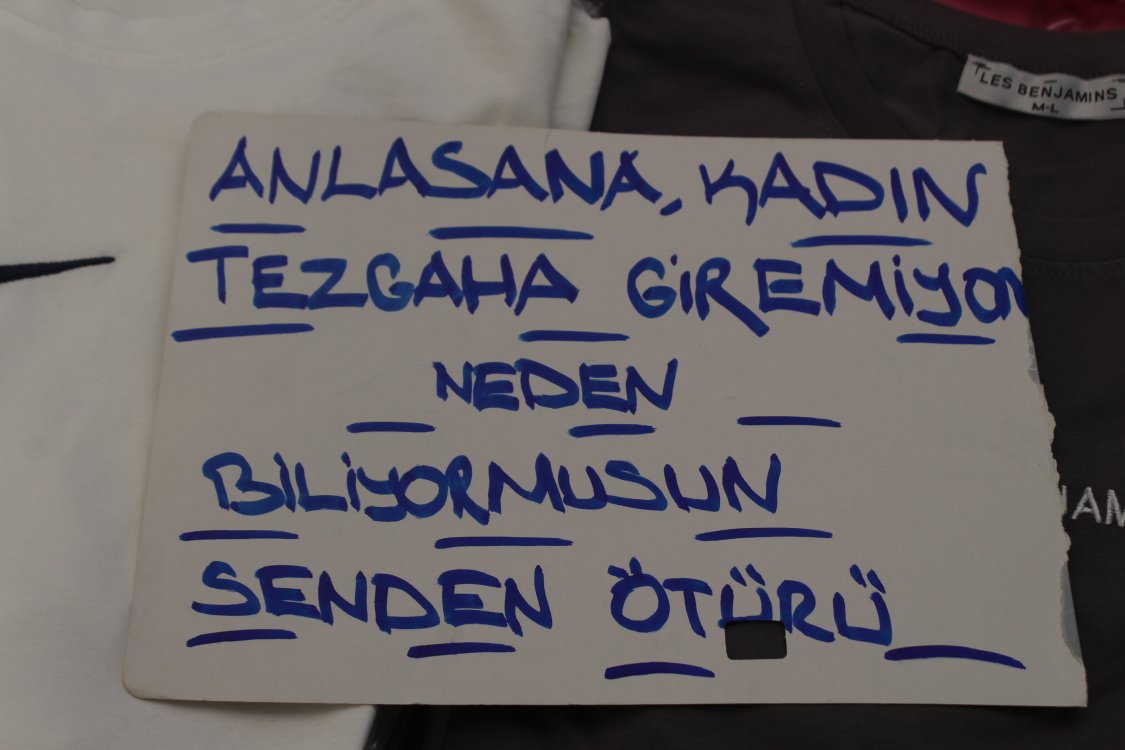 LES BENJAMINS
M-L
ANLASANA, KADIN
TEZGAHA GİREMİYOR
NEDEN
BİLİYORMUSUN
SENDEN ÖTÜRÜ